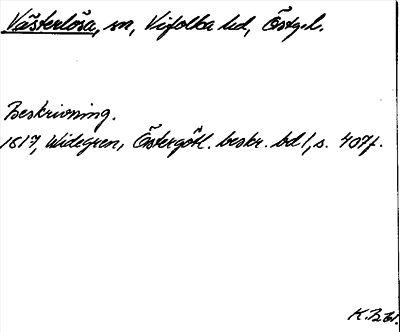 Västerlösa, sn, Vifolka hd, Östg.l.
Beskrivning.
1817, Widegren, Östergötl. beskr. bd 1, s. 407f.
K.B.Bl.